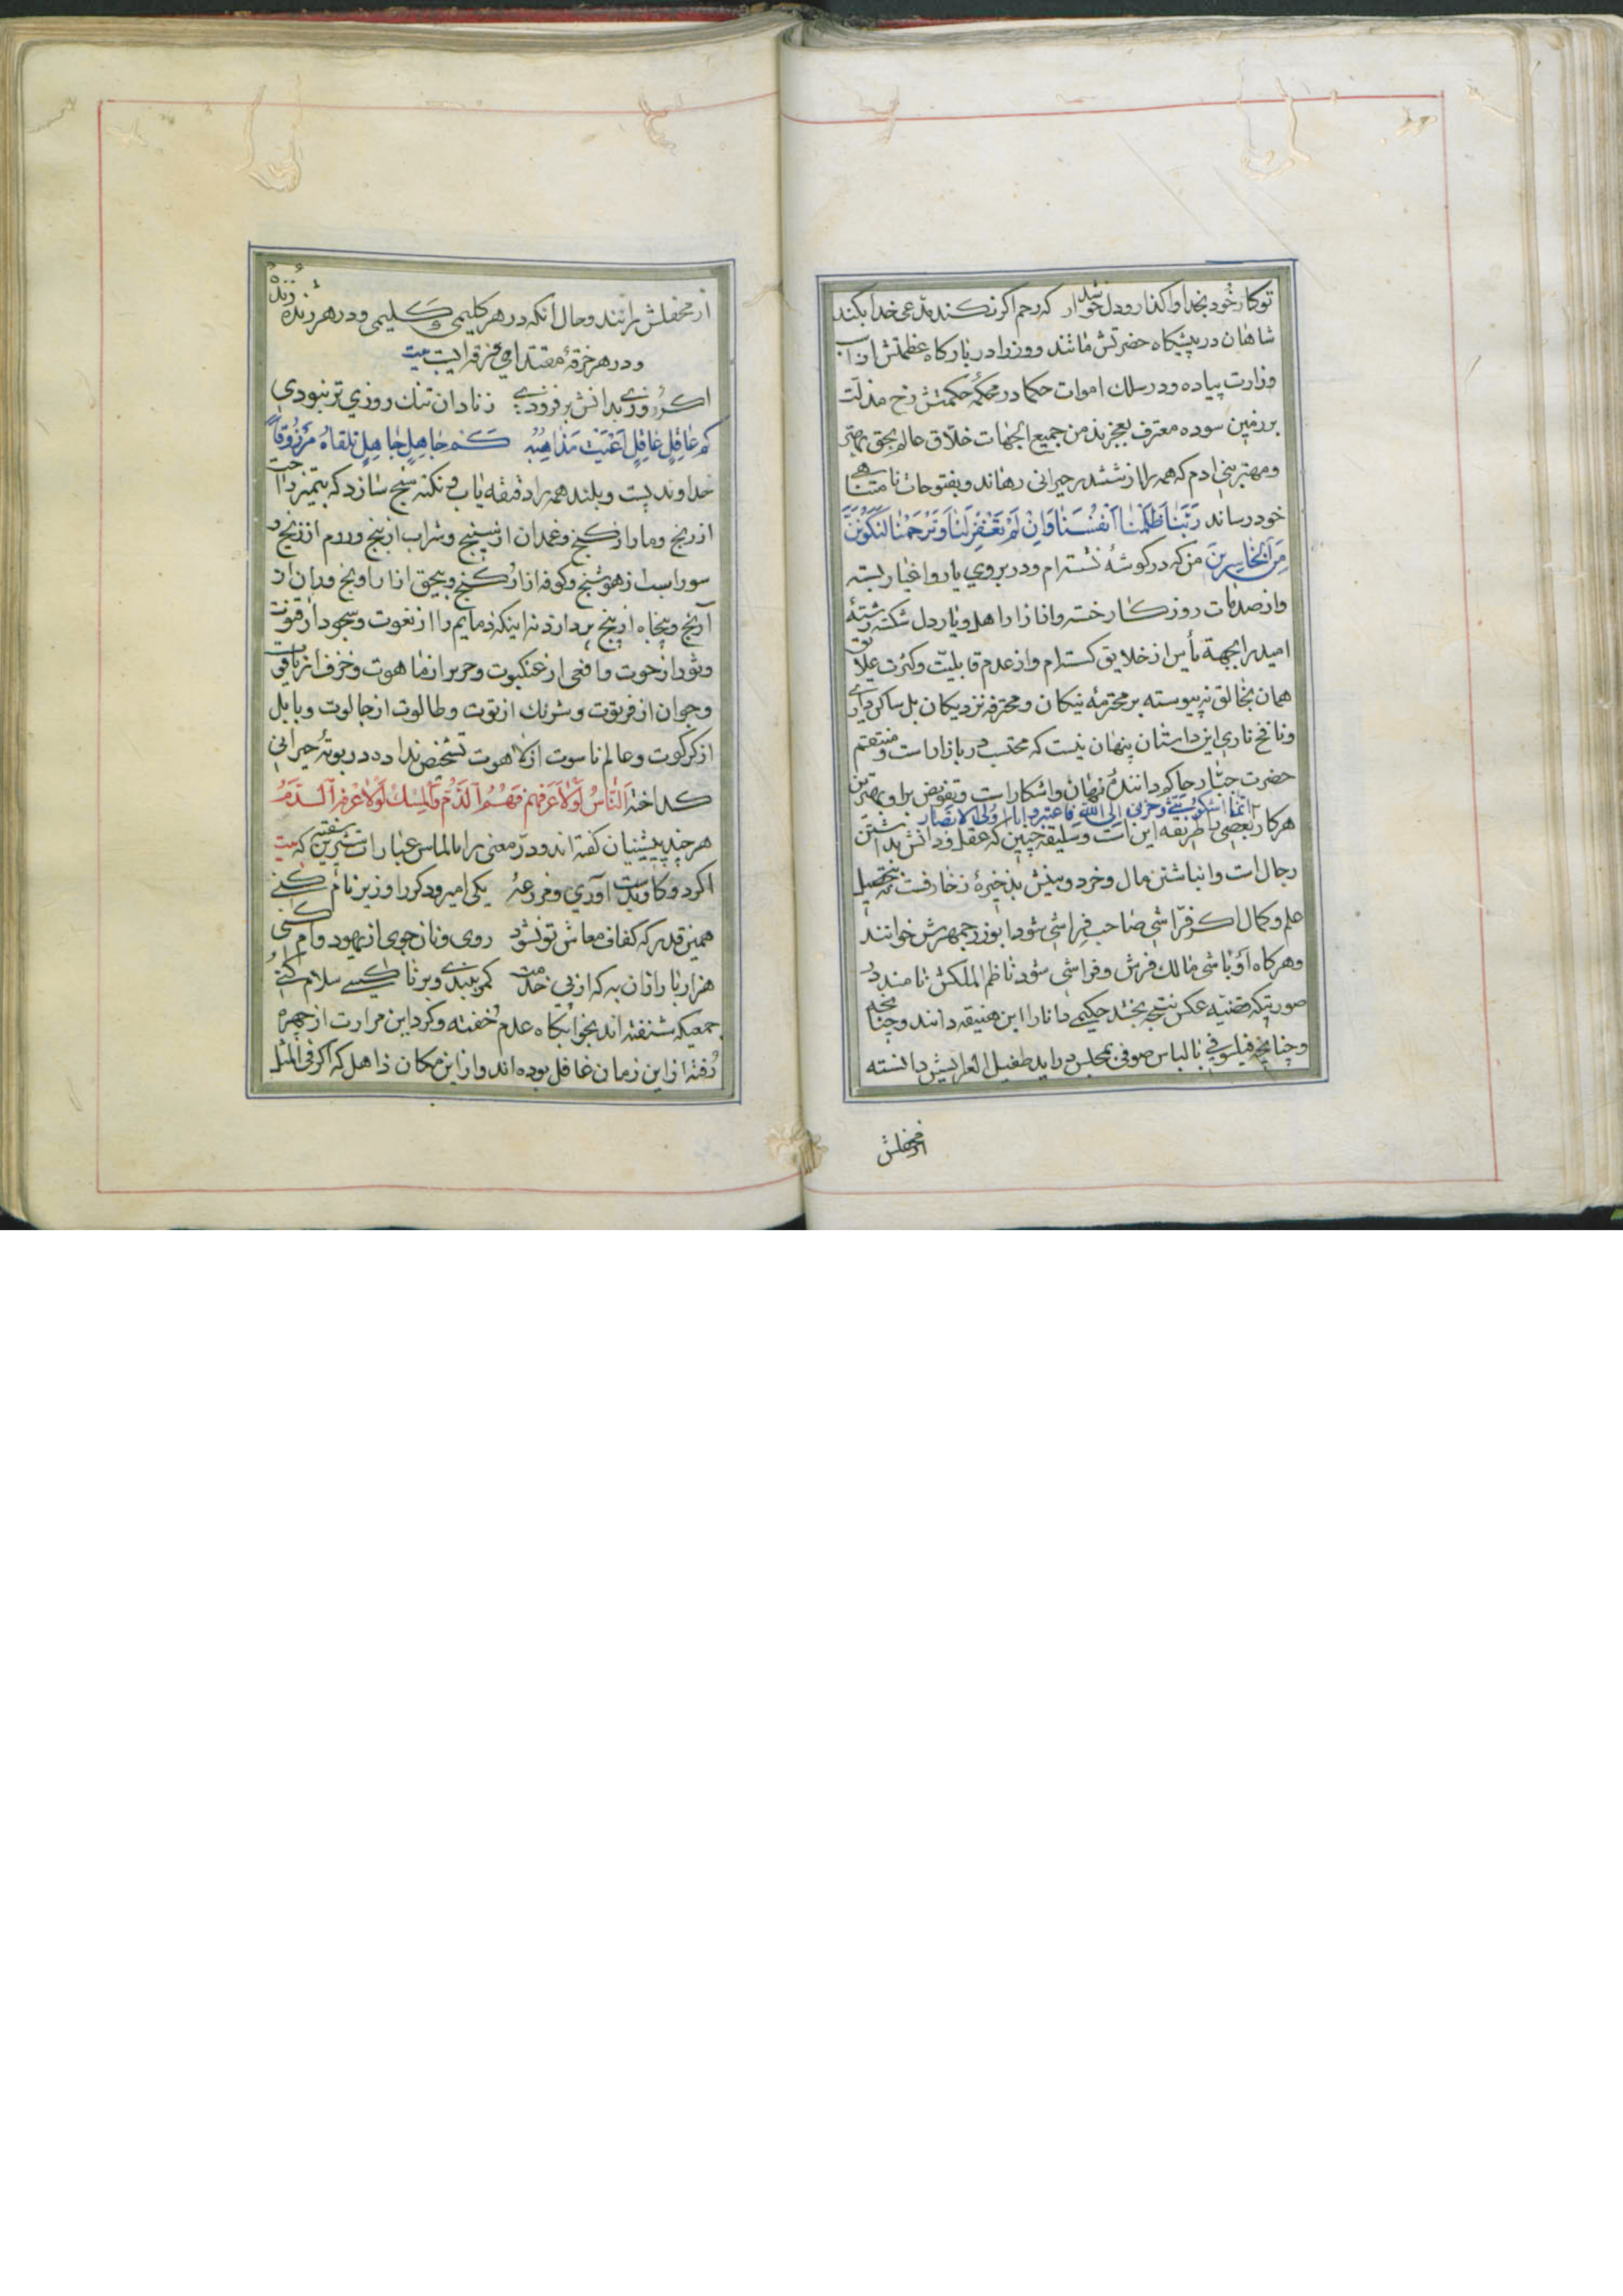 توکار خود بخدا واکذار و دل خوشدار که رحم اگر نکند مدعی خدا بکند
شاهان در پیشکاه حضرتش مانند و وزرا در بارکاه عظمتش از اسب
وزارت پیاده و در سلك اموات حکما در محکمهٔ حکمتش رخ مذلّت
بر زمین سوده معترف بعجزند من جمیع الجهات خلّاق عالم بحق بهترین
و مهتر بنی ادم که همه را از ششدر حیرانی رهاند و بفتوحات نامتناهی
خود رساند رَبَّنا ظَلَمْنا اَنفُسَنا وَاِنْ لَمْ تَغْفِرْ لَنا وَتَرْحَمْنا لَنَکُونَنَّ
مِنَ الْخاسِرینَ من که در کوشهٔ نشسته‌ام و در بروی یار و اغیار بسته
و از صدمات روزکار خسته و از ازار اهل دیار دل شکسته رشتهٔ
امید را بجهة یأس از خلایق کسسته‌ام و از عدم قابلیّت و کثرت علایق
همان بخالق نه پیوسته بر محترمهٔ نیکان و محترفهٔ نزدیکان بل ساکن دیار
این داستان پنهان نیست که محتسب در بازار است و منتقم
حضرت جبّار حاکم دانندهٔ نهان و اشکار است و تفویض برا و بهترین
انّما اشکو بثّی و حزنی الی الله فاعتبروا یا اولی الابصار
هرکار بعضی را طریقه این است و سلیقه چنین که عقل و دانش بداشتن
رجال است و انباشتن مال و خرد و بینش بذخیرهٔ زخارفست نه تحصیل
علم و کمال اکر فرّاشی صاحب فراشی شود ابوزرجمهرش خوانند
و هرکاه اوباشی مالك فرش و فراشی شود ناظم الملکش نامند در
صورتیکه قضیّه عکس نتیجه بخشد حکیمی دانا را ابن هنیقه دانند و چنانچه
و چنانچه فیلسوفی با لباس صوفی بمجلس دراید طفیل العرایش دانسته
از محفلش
از محفلش رانند و حال انکه در هر کلیمی کلیمی و در هر ژنده زنده
و در هر خرقهٔ مقتدای فرقه ایست بیت
اکر روزی بدانش بر فزودی ز نادان تنك روزی تر نبودی
کم عاقِلٍ عاقِلٍ اَعْیَتْ مَذاهِبُهُ کَم جاهِلٍ جاهِلٍ تلقاهُ مَرْزُوقاً
خداوند پست و بلند همه را دقیقه یاب و نکته سنج سازد که بتمیز راحت
از رنج و مار از کنج و غمدان از سپنج و شراب از بنج و روم از زنج و
سوراسب از هوشنج و کوفه از ارکنج و بیحق از اراونج و ران از
آرنج و پنجاه از پنج پردازند نه اینکه ذمایم را از نعوت و سجود از قنوت
و ثور از حوت و افعی از عنکبوت و حریر از ماهوت و خزف از یاقوت
و جوان از فرتوت و شرنك از توت و طالوت از جالوت و بابل
از کرکوت و عالم ناسوت از لاهوت تشخیص نداده در بوتهٔ حیرانی
کداخته اَلنّاسُ لَوْلا عَرفهم فَهُمُ الدَّمُ وَالمِسْكُ لَوْلا عَرْفُه الدَّمُ
هر چند پیشینیان کفته‌اند و درّ معنی را بالماس عبارات شیرین سفته که بیت
اکر دو کاو بدست آوری و مزرعهٔ یکی امیر و دکر را وزیر نام کنی
همین قدر که کفاف معاش تو نشود روی و نان جوی از یهود وام کنی
هزار بار ازان به که از پی خدمت کمر ببندی و بر ناکسی سلام کنی
جمعیکه شنفته‌اند بخوابکاه عدم خفته و کرد این مرارت از چهره
رُفته از این زمان غافل بوده‌اند و از این مکان ذاهل که اکر فی المثل